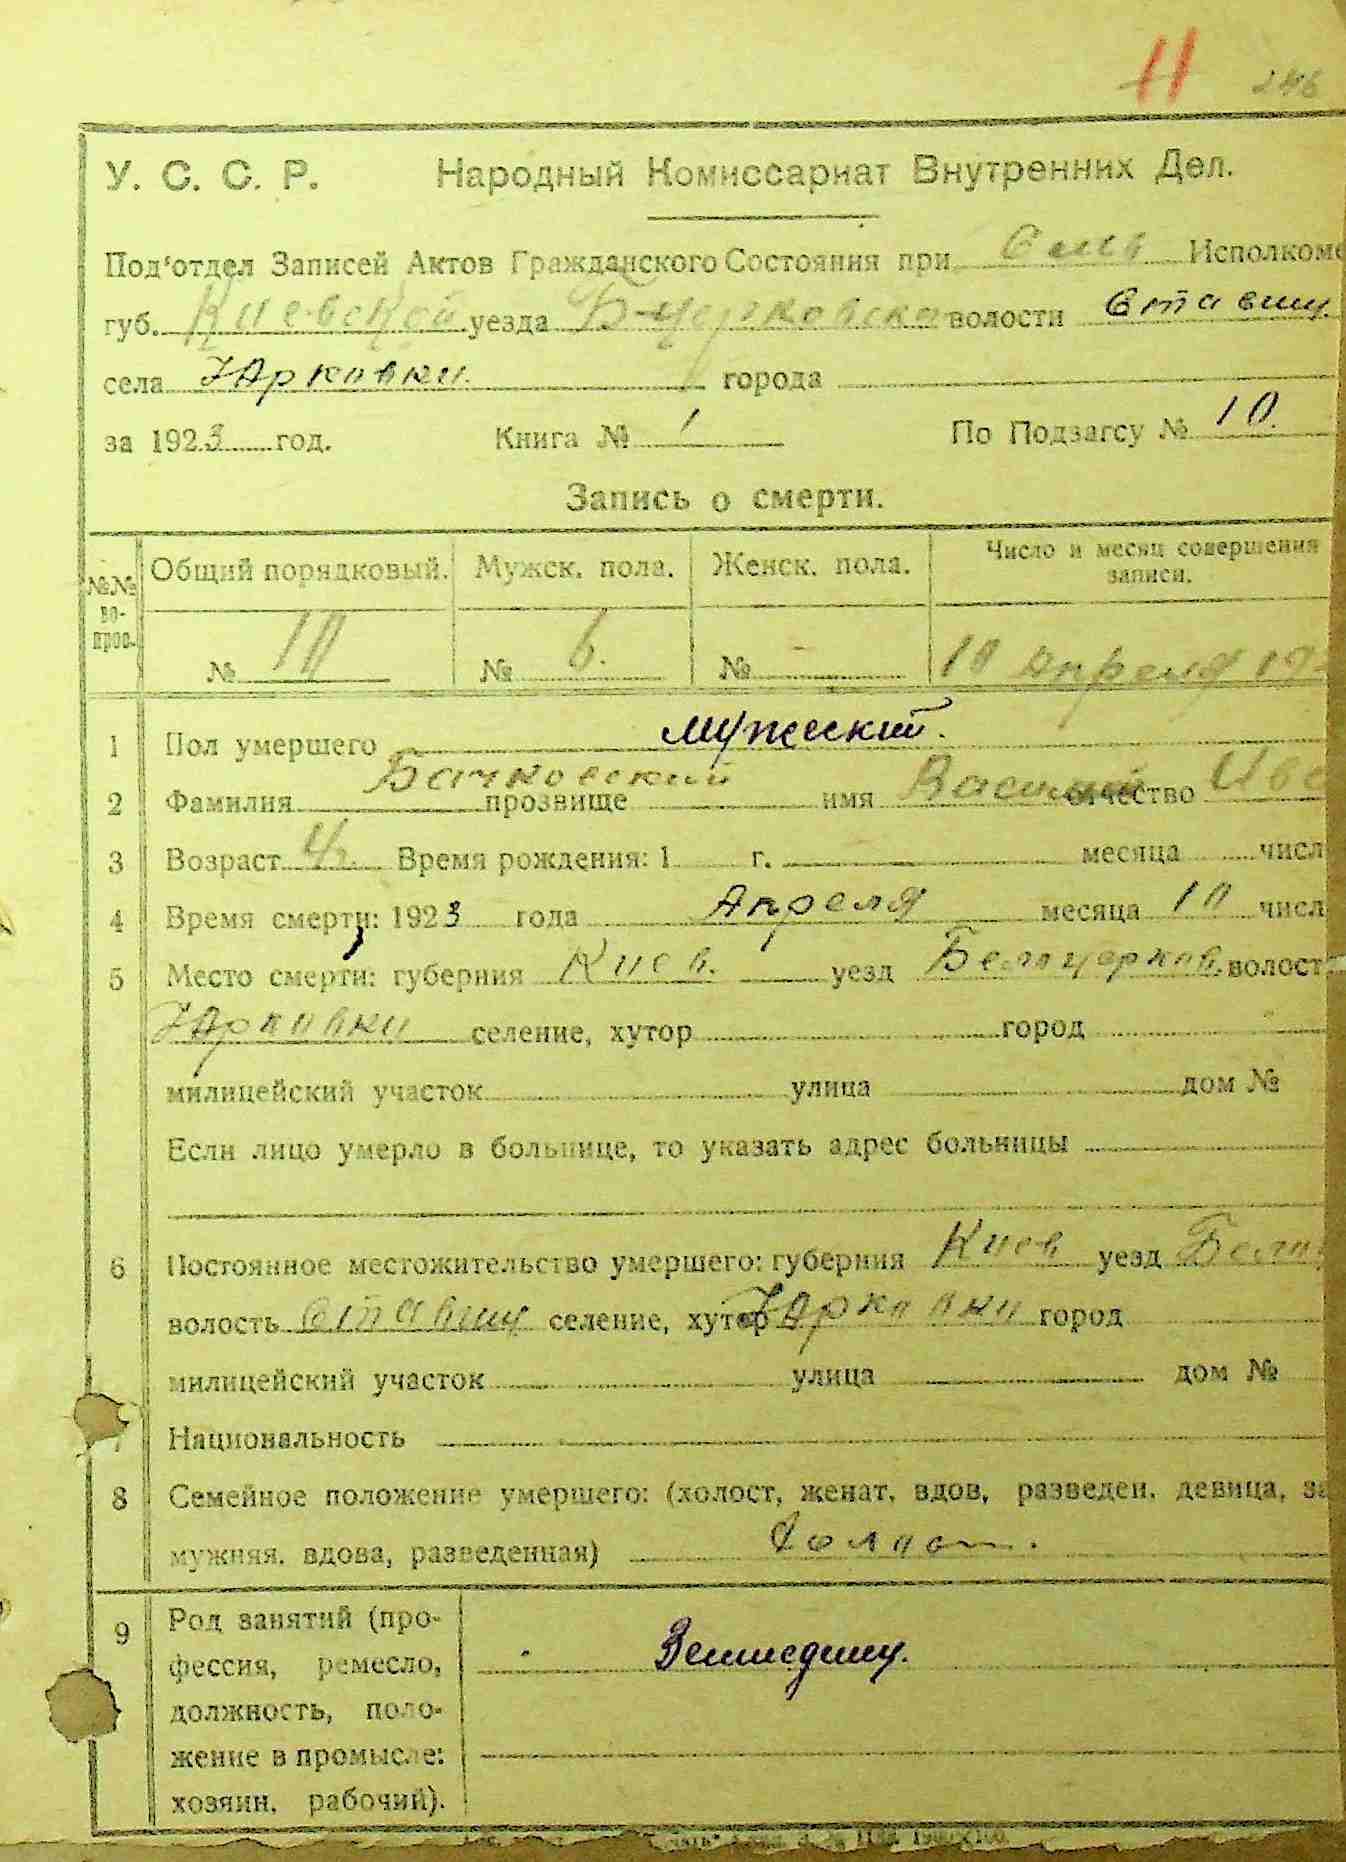 11 246
У. С. С. Р. Народный Комиссариат Внутренних Дел.
Под‘отдел Записей Актов Гражданского Состояния при Сель Исполкоме
губ. Киевской уезда Б-церковска волости Ставищ.
села Юрковки. города
за 1923 год. Книга № 1 По Подзагсу № 10.
Запись о смерти.
№№ вопрос. Общий порядковый. Мужск. пола. Женск. пола. Число и месяц совершения записи.
№ 10 № 6. № 10 Апреля 19
1 Пол умершего мужеский.
2 Фамилия Бачковский прозвище имя Василий отчество Ива
3 Возраст Время рождения: 1 г. месяца числ
4 Время смерти: 1923 года Апреля месяца 10 числ
5 Место смерти: губерния Киев. уезд Белоцерков. волост
Юрковки селение, хутор город
милицейский участок улица дом №
Если лицо умерло в больнице, то указать адрес больницы
6 Постоянное местожительство умершего: губерния Киев уезд Бело
волость Ставищ селение, хутор Юрковки город
милицейский участок улица дом №
7 Национальность
8 Семейное положение умершего: (холост, женат, вдов, разведен, девица, за
мужняя, вдова, разведенная) Холост.
9 Род занятий (про-
фессия, ремесло, Земледелец.
должность, поло-
жение в промысле:
хозяин, рабочий).